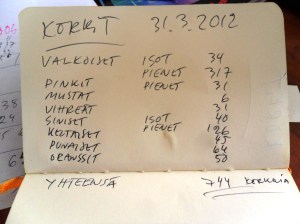 KORKIT 31.3.2012
VALKOISET ISOT 34
PIENET 317
PINKIT PIENET 31
MUSTAT 6
VIHREÄT 31
SINISET ISOT 40
KELTAISET PIENET 126
PUNAISET 45
ORANSSIT 64
50
YHTEENSÄ 744 korkkia